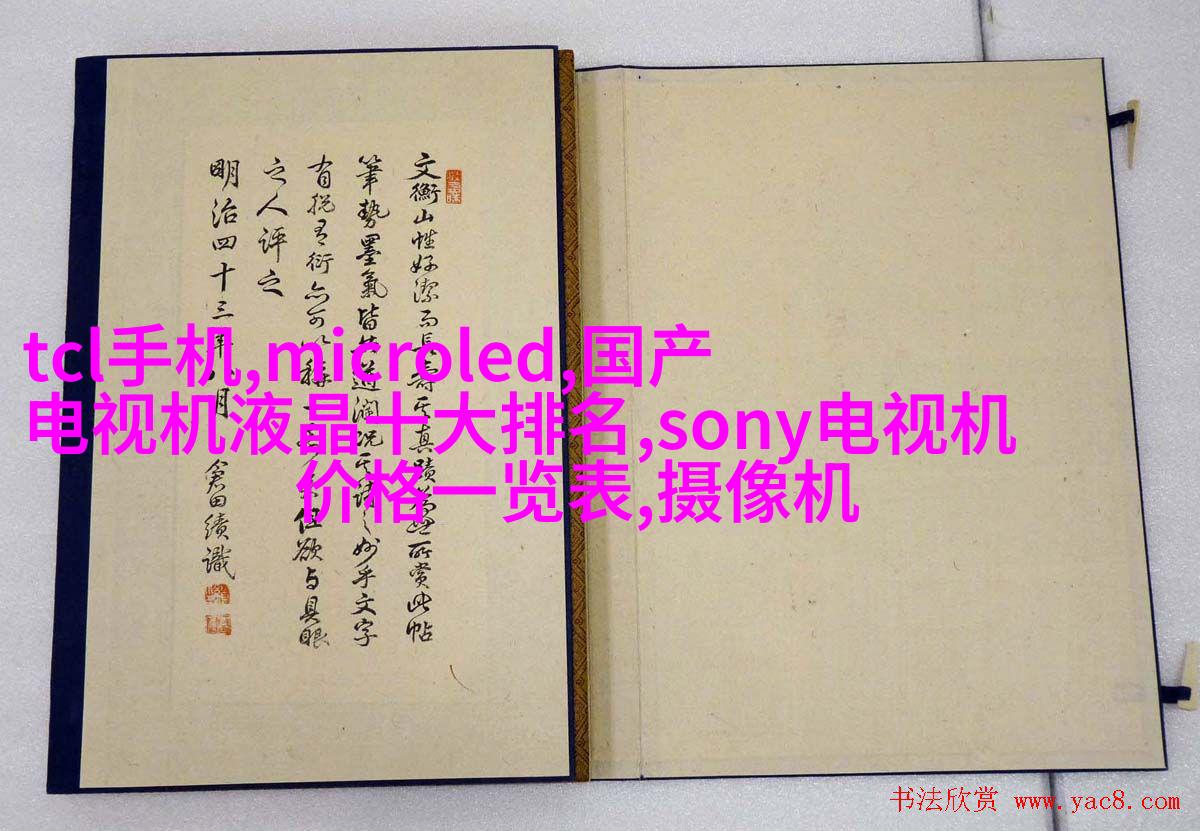 tcl手机,microled,国产
电视机液晶十大排名,sony电视机
价格一览表,摄像机
文衡山性好潔而長壽其真蹟所賞此帖
筆勢墨氣皆遒潤況其妙乎文字
有衍亦可稱一但欲与具眼
之人評之
明治四十三年八月 倉田績識
书法欣赏 www.yac8.com